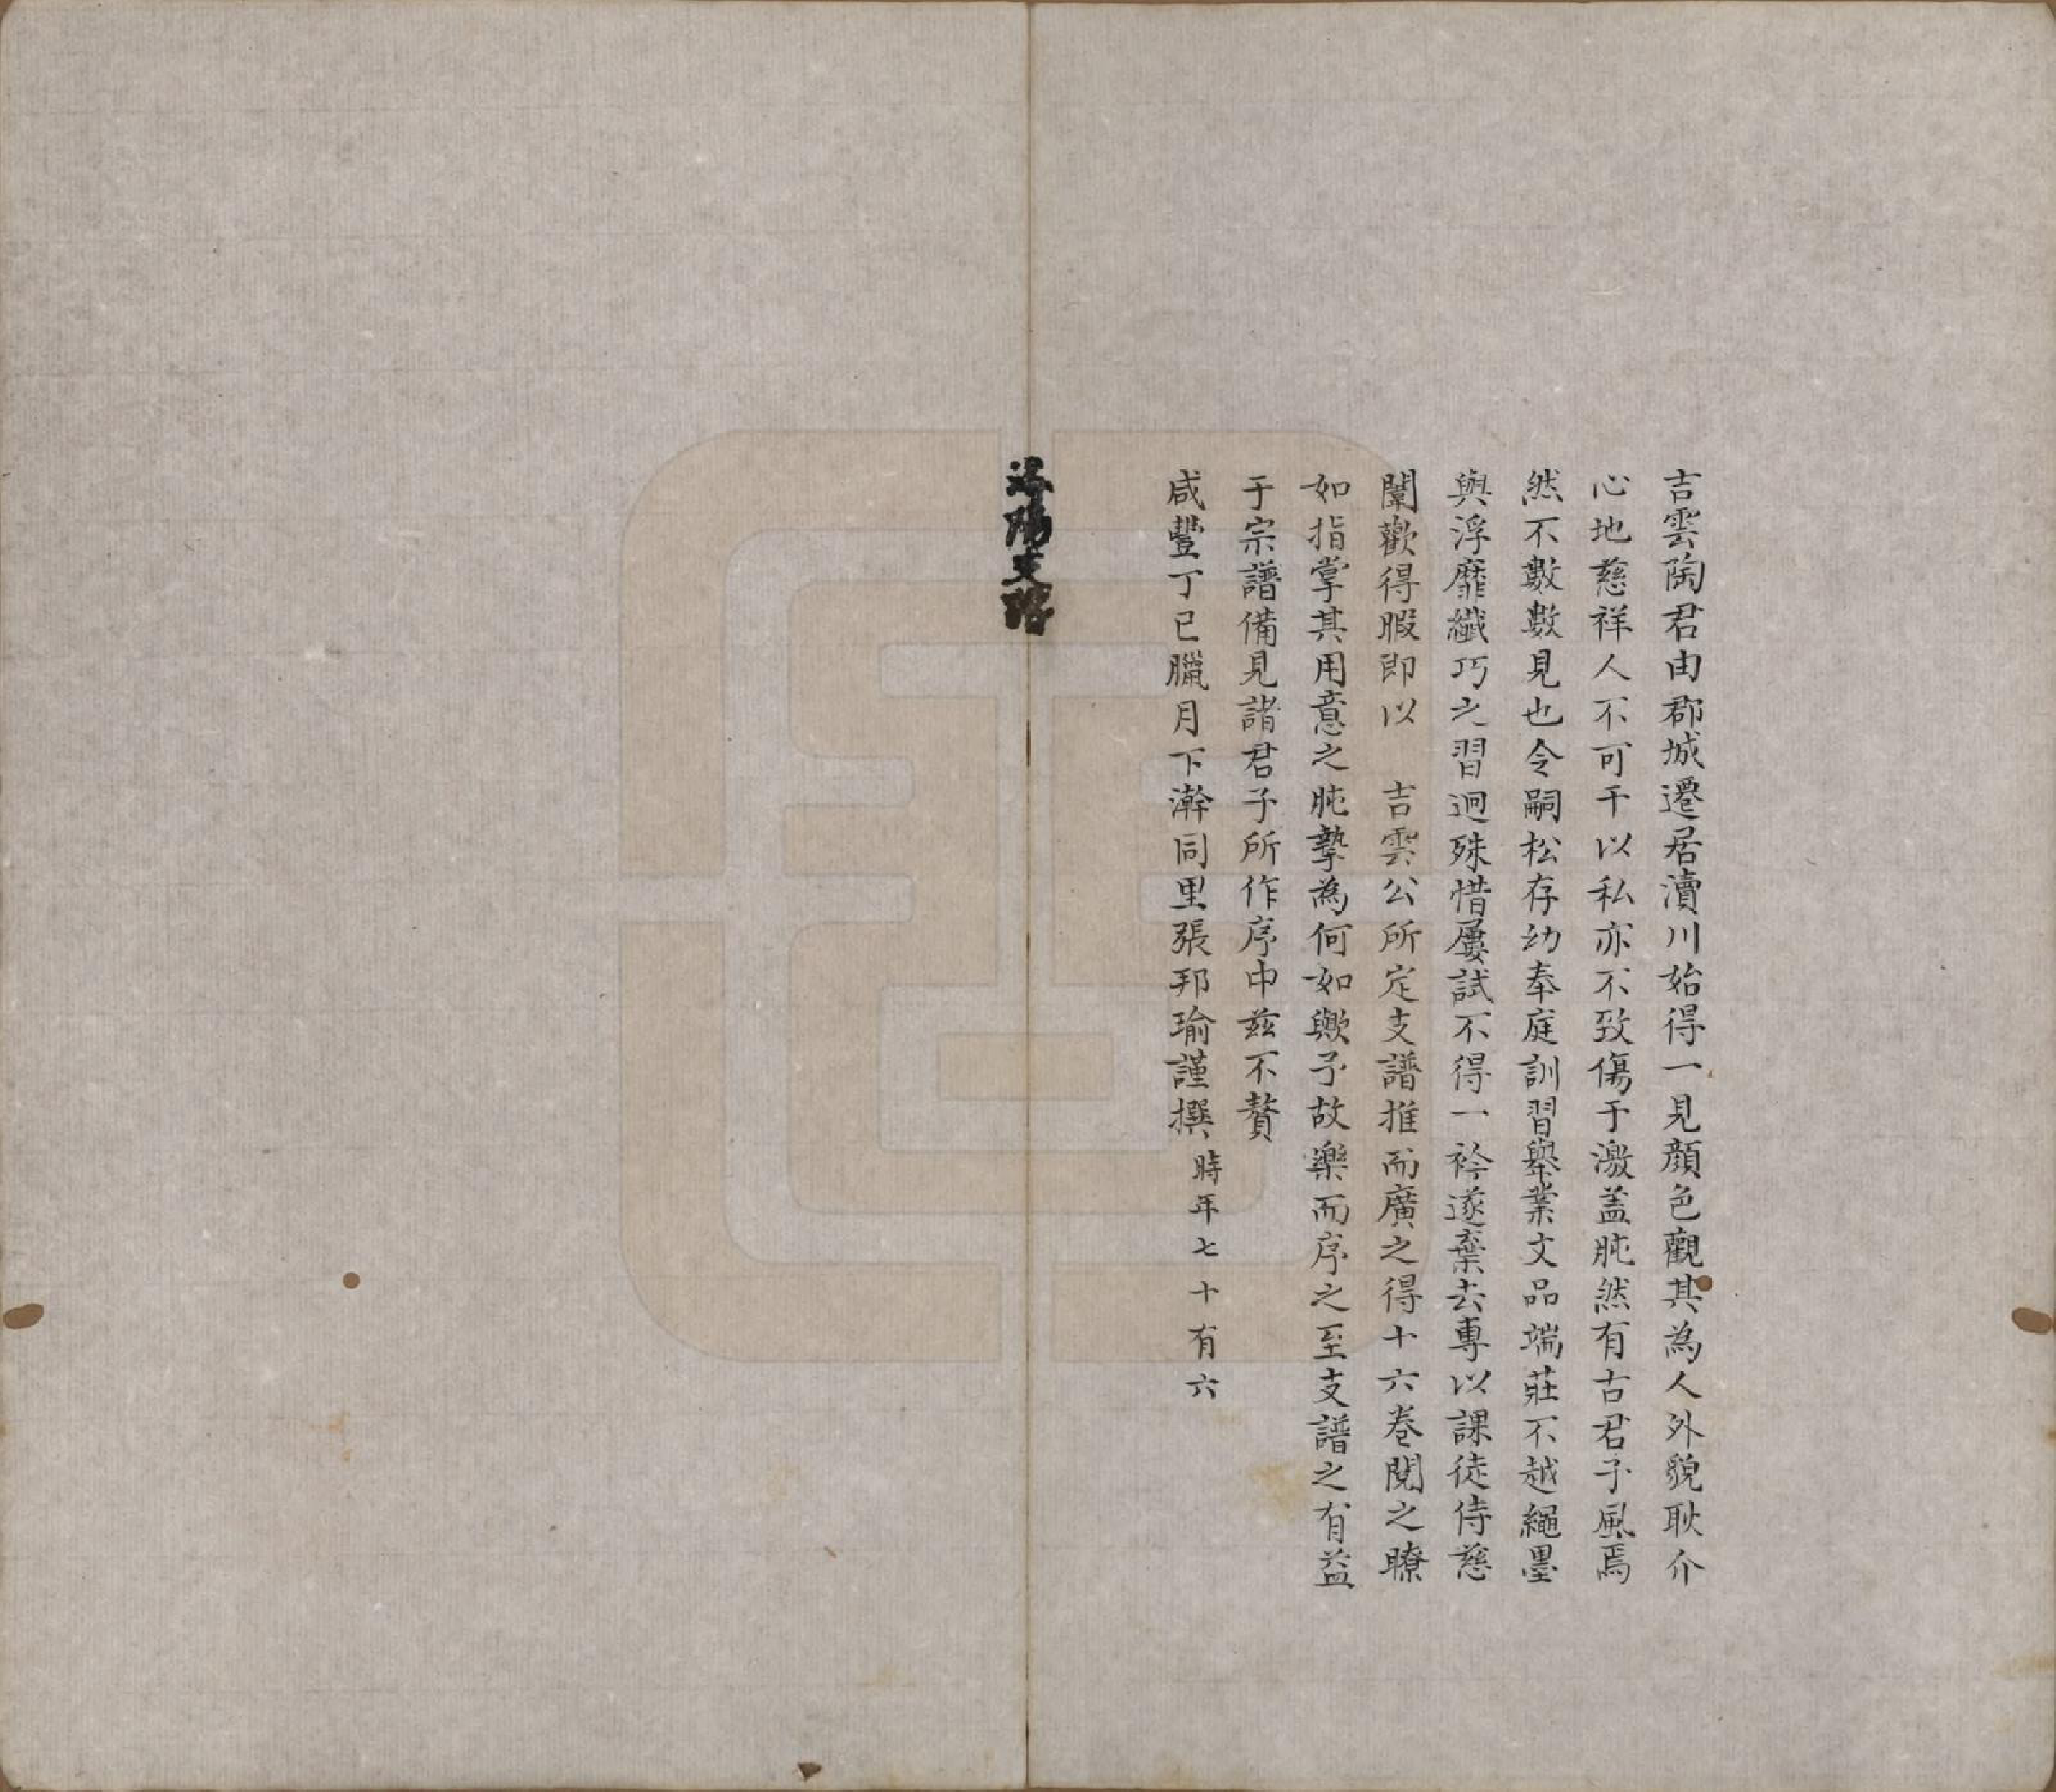 吉雲陶君由郡城遷居瀆川始得一見顏色觀其為人外貌耿介
心地慈祥人不可干以私亦不致傷于激盖肫然有古君子風焉
然不數數見也令嗣松存幼奉庭訓習舉業文品端莊不越繩墨
與浮靡纖巧之習迥殊惜屢試不得一衿遂棄去專以課徒侍慈
闈歡得暇即以　吉雲公所定支譜推而廣之得十六卷閱之瞭
如指掌其用意之肫摯為何如歟予故樂而序之至支譜之有益
于宗譜備見諸君子所作序中兹不贅
咸豐丁巳臘月下澣同里張邦瑜謹撰時年七十有六
陽支譜